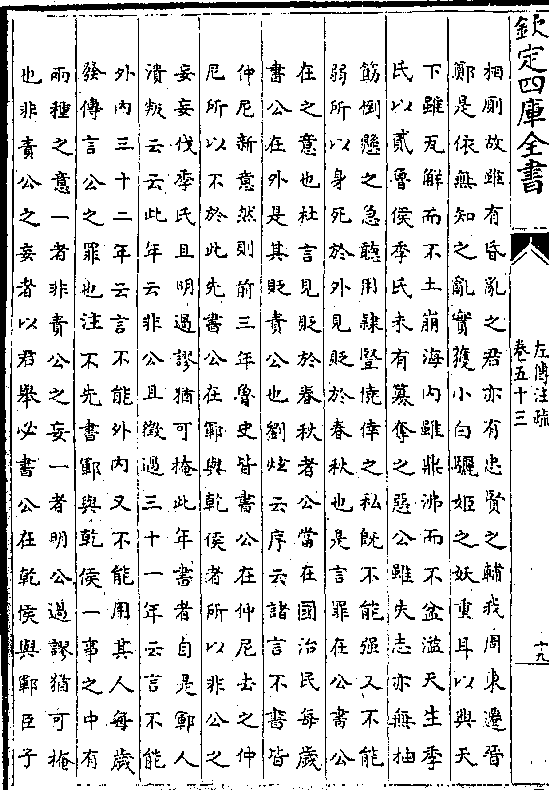 欽定四庫全書
左傳注疏
卷五十三
十九
相厠故雖有昏亂之君亦有忠賢之輔我周東遷晉
鄭是依無知之亂實獲小白驪姬之妖重耳以興天
下雖瓦解而不土崩海内雖鼎沸而不盆溢天生季
氏以貳魯侯季氏未有篡奪之惡公雖失志亦無抽
筋倒懸之急聽用隸豎僥倖之私既不能强又不能
弱所以身死於外見貶於春秋也是言罪在公書公
在之意也杜言見貶於春秋者公當在國治民每歲
書公在外是其貶責公也劉炫云序云諸言不書皆
仲尼新意然則前三年魯史皆書公在仲尼去之仲
尼所以不於此先書公在鄆與乾侯者所以非公之
妄妄伐季氏且明過謬猶可掩此年書者自是鄆人
潰叛云云此年云非公且徵過三十一年云言不能
外内三十二年云言不能外内又不能用其人每歲
發傳言公之罪也注不先書鄆與乾侯一事之中有
兩種之意一者非責公之妄一者明公過謬猶可掩
也非責公之妄者以君舉必書公在乾侯與鄆臣子